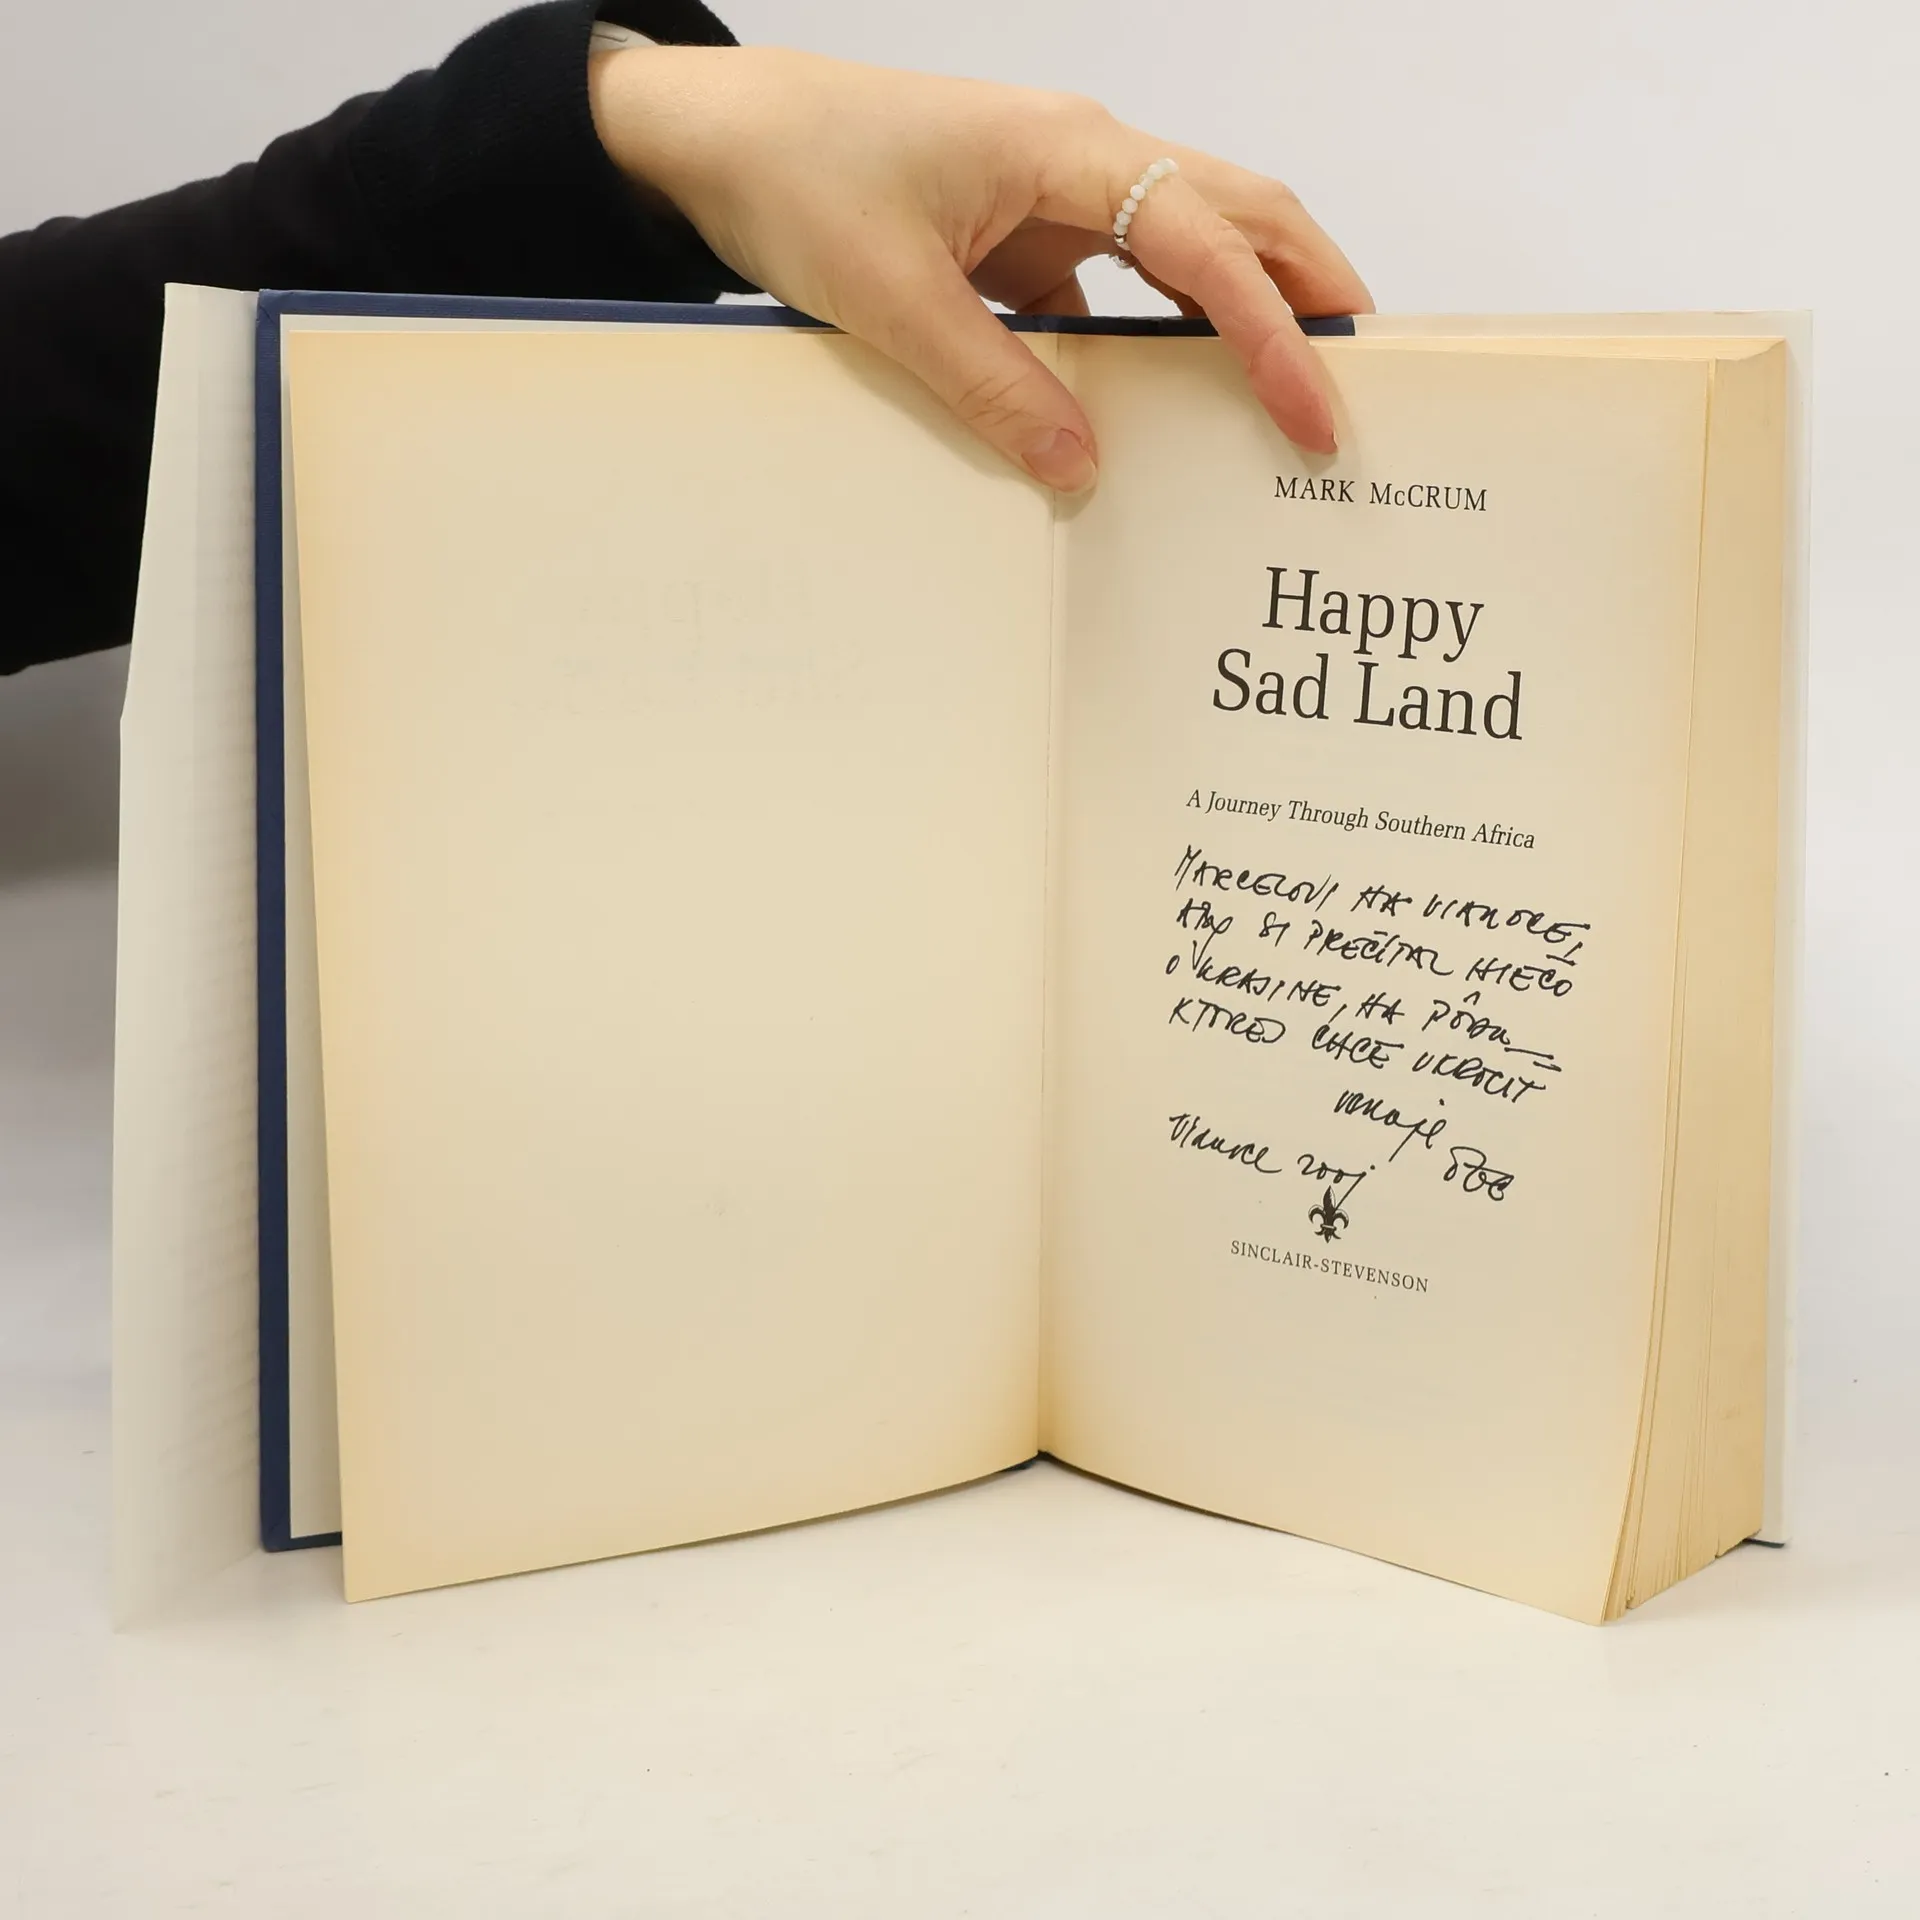 MARK McCRUM
Happy
Sad Land
A Journey Through Southern Africa
MARCELOVI NA VIANOCE,
ABY SI PREČÍTAL NIEČO
O KRAJINE, NA PÔDU
KTOREJ CHCE VKROČIŤ
venuje
Vianoce
SINCLAIR-STEVENSON